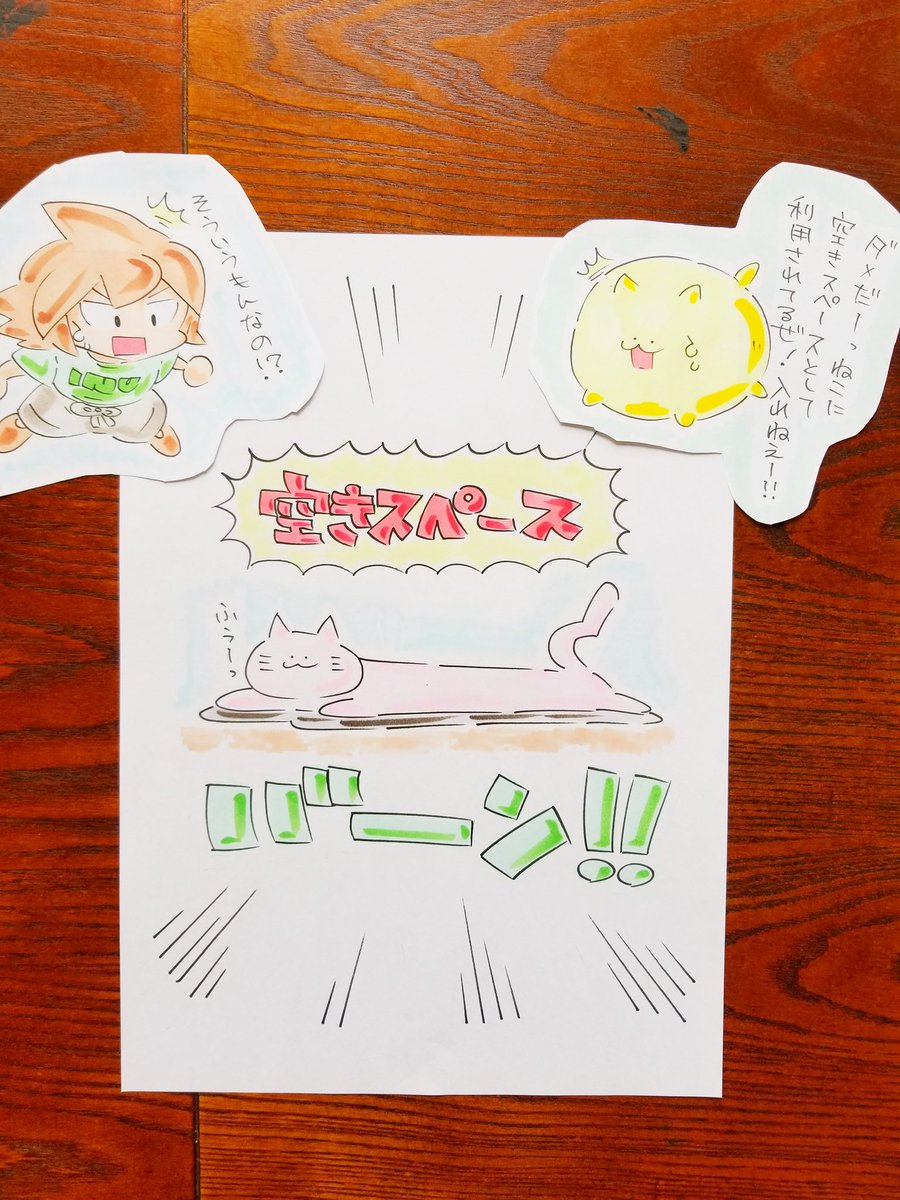 ダメだーっねこに
空きスペースとして
利用されてるぜ!入れねえー!!
そういうもんなの!?
空きスペース
ふぅーっ
バーン!!